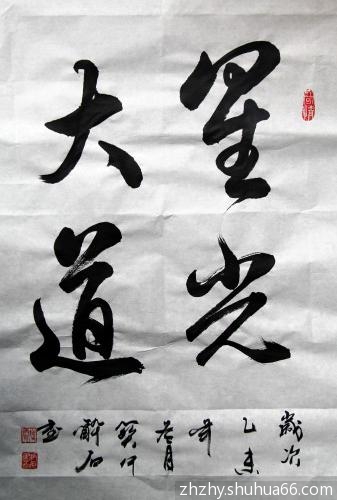 星光
大道
歲次
乙未
年
月
醉石
書
zhzhy.shuhua66.com